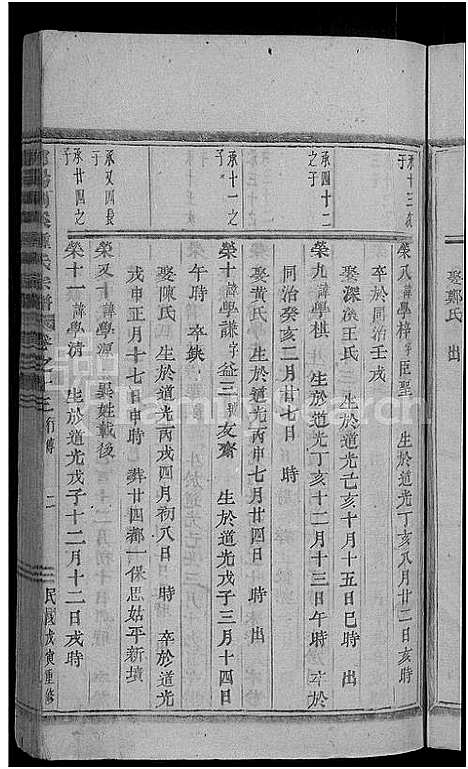 娶鄭氏 出
承十三
子
榮八諱學梓字臣聖 生於道光丁亥八月廿二日亥時
卒於同治壬戌
娶深溪王氏 生於道光己亥十月十五日巳時 出
承四十二
之子
榮九諱學棋 生於道光丁亥十二月十三日午時 卒於
同治癸亥二月廿七日 時
娶黃氏 生於道光丙申七月廿四日 時 出
承十一之
子
榮十諱學謙字益三號友齋 生於道光戊子三月十四日
午時 卒缺
娶陳氏 生於道光丙戌四月初八日 時 卒於道光
戊申正月十七日申時 葬廿四都一保思姑平新墳
承又四長
子
榮又十諱學源 異姓載後
承廿四之
子
榮十一諱學清 生於道光戊子十二月十二日戌時
氏宗譜 卷之十三 行傳 二 民國戊寅重修